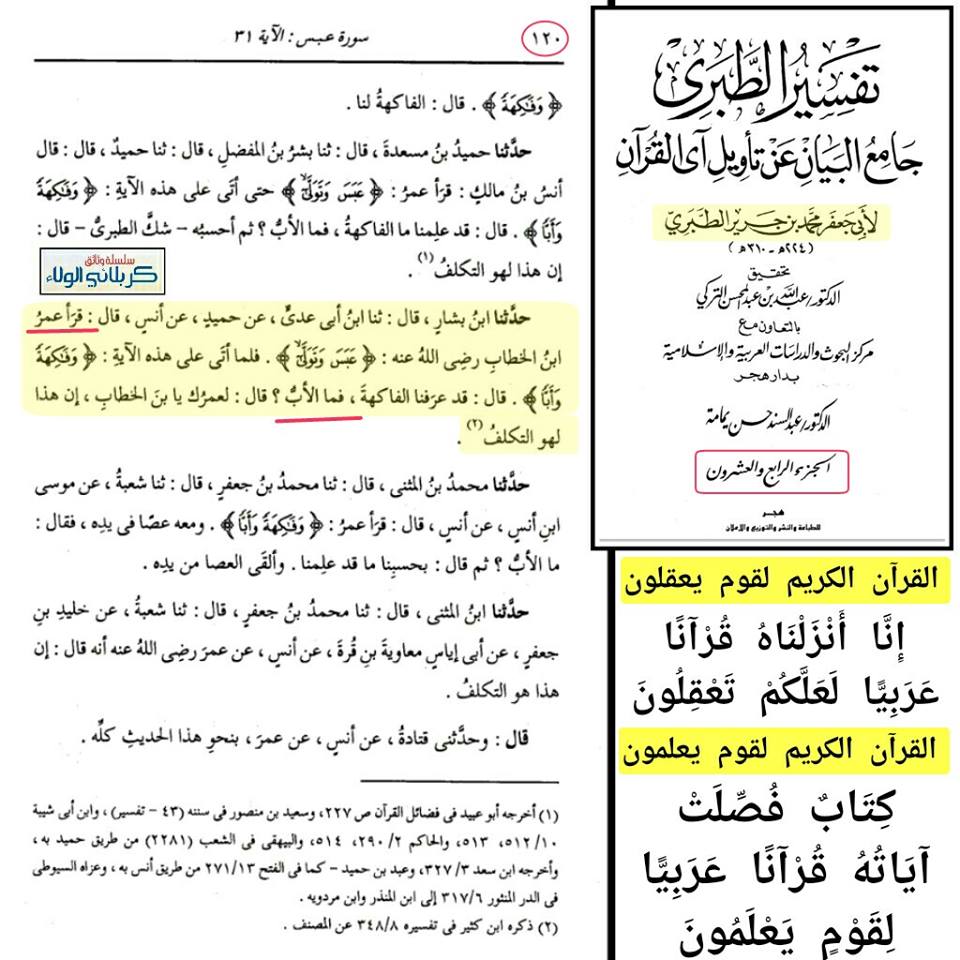 سورة عبس : الآية ٣١
١٢٠
﴿ وَفَٰكِهَةً ﴾ . قال : الفاكهةُ لنا .
حدَّثنا حميدُ بنُ مسعدةَ ، قال : ثنا بشرُ بنُ المفضلِ ، قال : ثنا حميدٌ ، قال : قال
أنسُ بنُ مالكٍ : قرَأ عمرُ : ﴿ عَبَسَ وَتَوَلَّىٰٓ ﴾ حتى أتَى على هذه الآيةِ : ﴿ وَفَٰكِهَةً
وَأَبًّا ﴾ . قال : قد علِمنا ما الفاكهةُ ، فما الأبُّ ؟ ثم أحسبُه – شكَّ الطبرىُّ – قال :
إن هذا لهو التكلفُ (١) .
سلسلة وثائق
كربلائي الولاء
حدَّثنا ابنُ بشارٍ ، قال : ثنا ابنُ أبى عدىٍّ ، عن حميدٍ ، عن أنسٍ ، قال : قرَأ عمرُ
ابنُ الخطابِ رضِى اللهُ عنه : ﴿ عَبَسَ وَتَوَلَّىٰٓ ﴾ . فلما أتَى على هذه الآيةِ : ﴿ وَفَٰكِهَةً
وَأَبًّا ﴾ . قال : قد عرَفنا الفاكهةَ ، فما الأبُّ ؟ قال : لعمرُك يا بنَ الخطابِ ، إن هذا
لهو التكلفُ (٢) .
حدَّثنا محمدُ بنُ المثنى ، قال : ثنا محمدُ بنُ جعفرٍ ، قال : ثنا شعبةُ ، عن موسى
ابنِ أنسٍ ، عن أنسٍ ، قال : قرَأ عمرُ : ﴿ وَفَٰكِهَةً وَأَبًّا ﴾ . ومعه عصًا فى يدِه ، فقال :
ما الأبُّ ؟ ثم قال : بحسبِنا ما قد علِمنا . وألقَى العصا من يدِه .
حدَّثنا ابنُ المثنى ، قال : ثنا محمدُ بنُ جعفرٍ ، قال : ثنا شعبةُ ، عن خليدِ بنِ
جعفرٍ ، عن أبى إياسٍ معاويةَ بنِ قُرةَ ، عن أنسٍ ، عن عمرَ رضِى اللهُ عنه أنه قال : إن
هذا هو التكلفُ .
قال : وحدَّثنى قتادةُ ، عن أنسٍ ، عن عمرَ ، بنحوِ هذا الحديثِ كلِّه .
(١) أخرجه أبو عبيد فى فضائل القرآن ص ٢٢٧، وسعيد بن منصور فى سننه (٤٣ – تفسير) ، وابن أبى شيبة
٥١٢/١٠، ٥١٣، والحاكم ٢٩٠/٢، ٥١٤، والبيهقى فى الشعب (٢٢٨١) من طريق حميد به ،
وأخرجه ابن سعد ٣٢٧/٣، وعبد بن حميد – كما فى الفتح ٢٧١/١٣ من طريق أنس به ، وعزاه السيوطى
فى الدر المنثور ٣١٧/٦ إلى ابن المنذر وابن مردويه .
(٢) ذكره ابن كثير فى تفسيره ٣٤٨/٨ عن المصنف .
تفسير الطبري
جامع البيان عن تأويل آى القرآن
لأبي جعفر محمد بن جرير الطبري
(٢٢٤هـ - ٣١٠هـ)
تحقيق
الدكتور/عبد الله بن عبد المحسن التركي
بالتعاون مع
مركز البحوث والدراسات العربية والإسلامية
بدار هجر
الدكتور/عبد السند حسن يمامة
الجزء الرابع والعشرون
هجر
للطباعة والنشر والتوزيع والإعلان
القرآن الكريم لقوم يعقلون
إِنَّا أَنْزَلْنَاهُ قُرْآنًا
عَرَبِيًّا لَعَلَّكُمْ تَعْقِلُونَ
القرآن الكريم لقوم يعلمون
كِتَابٌ فُصِّلَتْ
آيَاتُهُ قُرْآنًا عَرَبِيًّا
لِقَوْمٍ يَعْلَمُونَ